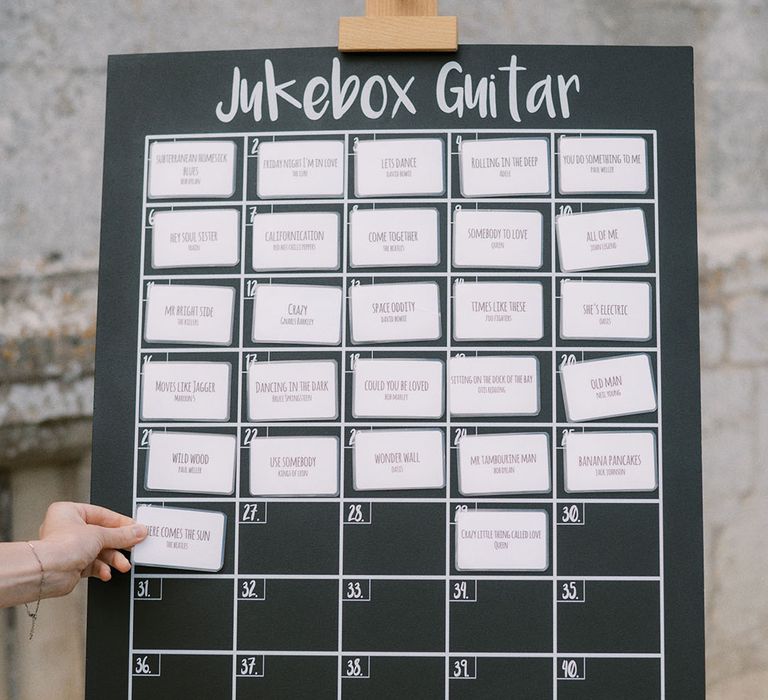 Jukebox Guitar
2. 3. 4. 5.
SUBTERRANEAN HOMESICK
BLUES
BOB DYLAN
FRIDAY NIGHT I'M IN LOVE
THE CURE
LETS DANCE
DAVID BOWIE
ROLLING IN THE DEEP
ADELE
YOU DO SOMETHING TO ME
PAUL WELLER
6. 7. 8. 9. 10.
HEY SOUL SISTER
TRAIN
CALIFORNICATION
RED HOT CHILLI PEPPERS
COME TOGETHER
THE BEATLES
SOMEBODY TO LOVE
QUEEN
ALL OF ME
JOHN LEGEND
11. 12. 13. 14. 15.
MR BRIGHT SIDE
THE KILLERS
CRAZY
GNARLS BARKLEY
SPACE ODDITY
DAVID BOWIE
TIMES LIKE THESE
FOO FIGHTERS
SHE'S ELECTRIC
OASIS
16. 17. 18. 19. 20.
MOVES LIKE JAGGER
MAROON 5
DANCING IN THE DARK
BRUCE SPRINGSTEEN
COULD YOU BE LOVED
BOB MARLEY
SITTING ON THE DOCK OF THE BAY
OTIS REDDING
OLD MAN
NEIL YOUNG
21. 22. 23. 24. 25.
WILD WOOD
PAUL WELLER
USE SOMEBODY
KINGS OF LEON
WONDER WALL
OASIS
MR TAMBOURINE MAN
BOB DYLAN
BANANA PANCAKES
JACK JOHNSON
27. 28. 30.
HERE COMES THE SUN
THE BEATLES
CRAZY LITTLE THING CALLED LOVE
QUEEN
31. 32. 33. 34. 35.
36. 37. 38. 39. 40.